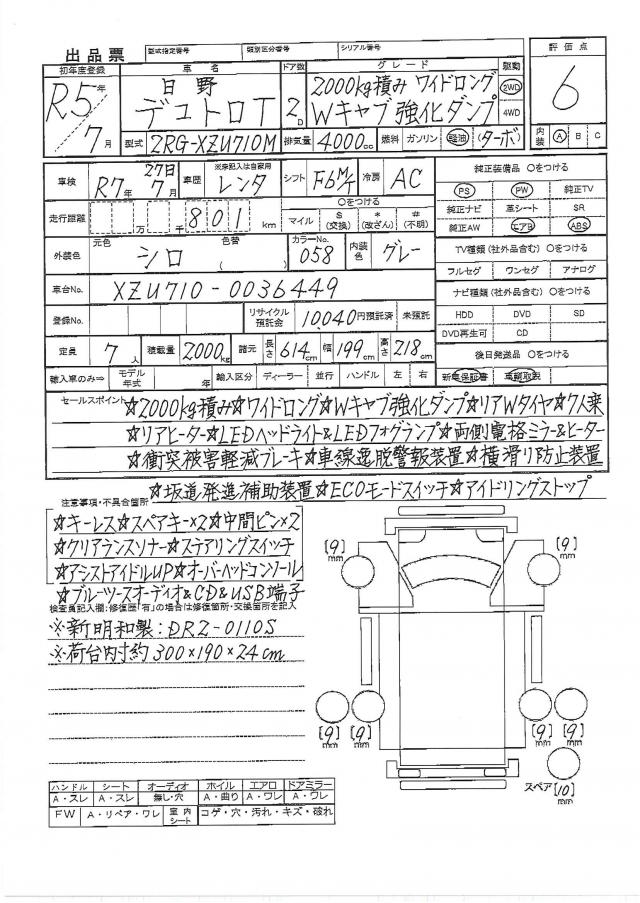 出品票 型式指定番号 類別区分番号 シリアル番号 評価点
初年度登録 車名 ドア数 グレード 駆動
R5年 日野 2000kg積み ワイドロング 2WD 6
7月 デュトロT 2D Wキャブ強化ダンプ 4WD
型式 2RG-XZU710M 排気量 4000cc 燃料 ガソリン 軽油 (ターボ) 内装 A B C
車検 R7年 7月 27日 車歴 ※未記入は自家用 レンタ シフト F6M/T 冷房 AC 純正装備品 ○をつける
PS PW 純正TV
走行距離 万 千 801km ○をつける 純正ナビ 革シート SR
マイル $(交換) *(改ざん) #(不明) 純正AW エアB ABS
外装色 元色 シロ 色替 ( ) カラーNo. 058 内装色 グレー TV種類(社外品含む) ○をつける
フルセグ ワンセグ アナログ
車台No. XZU710-0036449 ナビ種類(社外品含む) ○をつける
登録No. リサイクル預託金 10,040円預託済 未預託 HDD DVD SD
DVD再生可 CD
定員 7人 積載量 2000kg 諸元 長さ 614cm 幅 199cm 高さ 218cm 後日発送品 ○をつける
輸入車のみ⇒ モデル年式 年 輸入区分 ディーラー 並行 ハンドル 左 右 新車保証書 車輌取説
セールスポイント ☆2000kg積み☆ワイドロング☆Wキャブ強化ダンプ☆リアWタイヤ☆7人乗
☆リアヒーター☆LEDヘッドライト&LEDフォグランプ☆両側電格ミラー&ヒーター
☆衝突被害軽減ブレーキ☆車線逸脱警報装置☆横滑り防止装置
☆坂道発進補助装置☆ECOモードスイッチ☆アイドリングストップ
注意事項・不具合箇所
☆キーレス☆スペアキー×2☆中間ピン×2
☆クリアランスソナー☆ステアリングスイッチ
☆アシストアイドルUP☆オーバーヘッドコンソール
☆ブルーツースオーディオ&CD&USB端子
検査員記入欄:修復歴「有」の場合は修復箇所・交換箇所を記入
※新明和製:DR2-0110S
※荷台内寸約300×190×24cm
[9]mm [9]mm
[9]mm [9]mm [9]mm [9]mm
スペア [10]mm
ハンドル シート オーディオ ホイル エアロ ドアミラー
A・スレ A・スレ 無し・穴 A・曲り A・ワレ A・ワレ
FW A・リペア・ワレ 室内シート コゲ・穴・汚れ・キズ・破れ